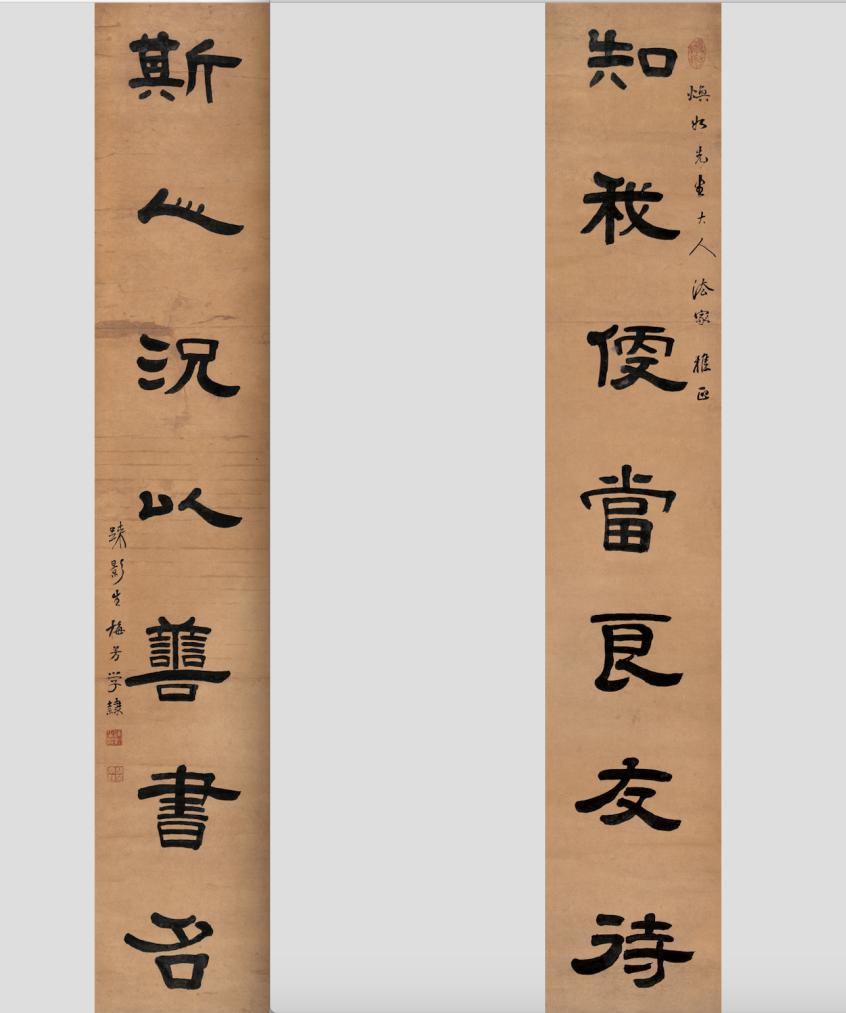 煥如先生大人法家雅正
知我便當良友待
斯人況以善書名
踈影生梅芳学隸